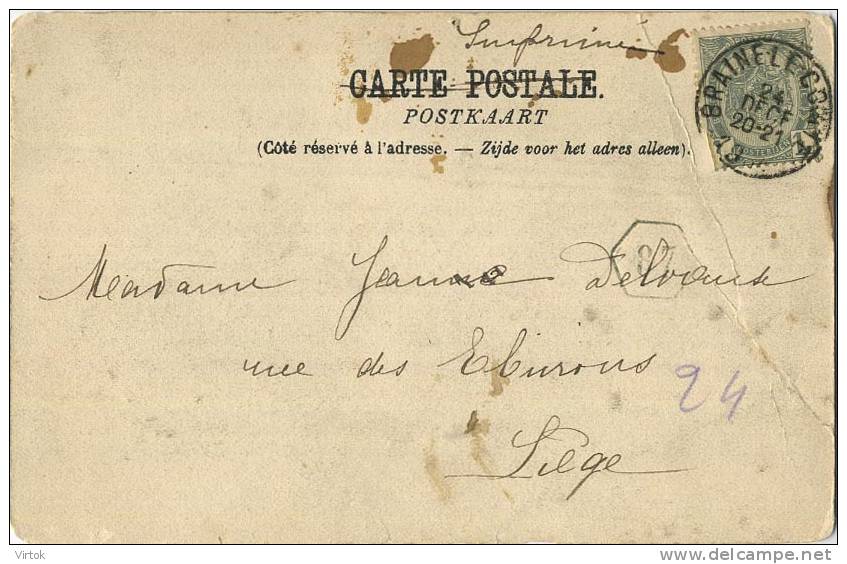 Imprimé
CARTE POSTALE.
POSTKAART
(Côté réservé à l'adresse. — Zijde voor het adres alleen).
BRAINE-LE-COMTE
24
DECE
20-21
Madame Jeanne Delvaux
rue des Eburons
24
Liège
Virtok
delcampe.net